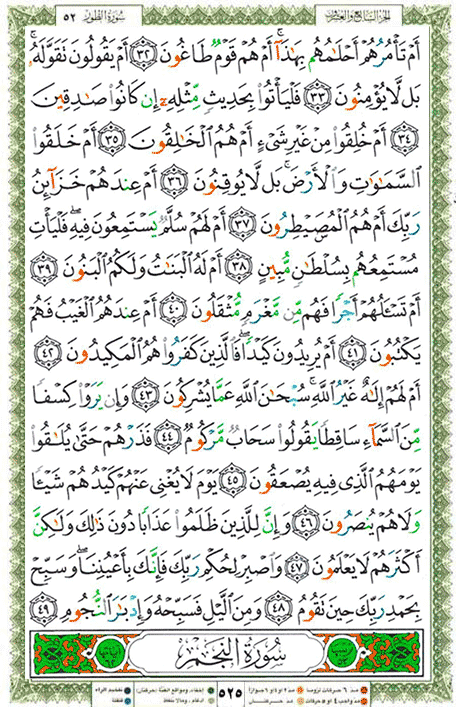 الجزء السابع والعشرون ٥٢ سورة الطور
أَمۡ تَأۡمُرُهُمۡ أَحۡلَٰمُهُم بِهَٰذَآۚ أَمۡ هُمۡ قَوۡمٞ طَاغُونَ ٣٢ أَمۡ يَقُولُونَ تَقَوَّلَهُۥۚ
بَل لَّا يُؤۡمِنُونَ ٣٣ فَلۡيَأۡتُواْ بِحَدِيثٖ مِّثۡلِهِۦٓ إِن كَانُواْ صَٰدِقِينَ
٣٤ أَمۡ خُلِقُواْ مِنۡ غَيۡرِ شَيۡءٍ أَمۡ هُمُ ٱلۡخَٰلِقُونَ ٣٥ أَمۡ خَلَقُواْ
ٱلسَّمَٰوَٰتِ وَٱلۡأَرۡضَۚ بَل لَّا يُوقِنُونَ ٣٦ أَمۡ عِندَهُمۡ خَزَآئِنُ
رَبِّكَ أَمۡ هُمُ ٱلۡمُصَۜيۡطِرُونَ ٣٧ أَمۡ لَهُمۡ سُلَّمٞ يَسۡتَمِعُونَ فِيهِۖ فَلۡيَأۡتِ
مُسۡتَمِعُهُم بِسُلۡطَٰنٖ مُّبِينٍ ٣٨ أَمۡ لَهُ ٱلۡبَنَٰتُ وَلَكُمُ ٱلۡبَنُونَ ٣٩
أَمۡ تَسۡـَٔلُهُمۡ أَجۡرٗا فَهُم مِّن مَّغۡرَمٖ مُّثۡقَلُونَ ٤٠ أَمۡ عِندَهُمُ ٱلۡغَيۡبُ فَهُمۡ
يَكۡتُبُونَ ٤١ أَمۡ يُرِيدُونَ كَيۡدٗاۖ فَٱلَّذِينَ كَفَرُواْ هُمُ ٱلۡمَكِيدُونَ ٤٢
أَمۡ لَهُمۡ إِلَٰهٌ غَيۡرُ ٱللَّهِۚ سُبۡحَٰنَ ٱللَّهِ عَمَّا يُشۡرِكُونَ ٤٣ وَإِن يَرَوۡاْ كِسۡفٗا
مِّنَ ٱلسَّمَآءِ سَاقِطٗا يَقُولُواْ سَحَابٞ مَّرۡكُومٞ ٤٤ فَذَرۡهُمۡ حَتَّىٰ يُلَٰقُواْ
يَوۡمَهُمُ ٱلَّذِي فِيهِ يُصۡعَقُونَ ٤٥ يَوۡمَ لَا يُغۡنِي عَنۡهُمۡ كَيۡدُهُمۡ شَيۡـٔٗا
وَلَا هُمۡ يُنصَرُونَ ٤٦ وَإِنَّ لِلَّذِينَ ظَلَمُواْ عَذَابٗا دُونَ ذَٰلِكَ وَلَٰكِنَّ
أَكۡثَرَهُمۡ لَا يَعۡلَمُونَ ٤٧ وَٱصۡبِرۡ لِحُكۡمِ رَبِّكَ فَإِنَّكَ بِأَعۡيُنِنَاۖ وَسَبِّحۡ
بِحَمۡدِ رَبِّكَ حِينَ تَقُومُ ٤٨ وَمِنَ ٱلَّيۡلِ فَسَبِّحۡهُ وَإِدۡبَٰرَ ٱلنُّجُومِ ٤٩
سُورَةُ النَّجْمِ
٥٢٥